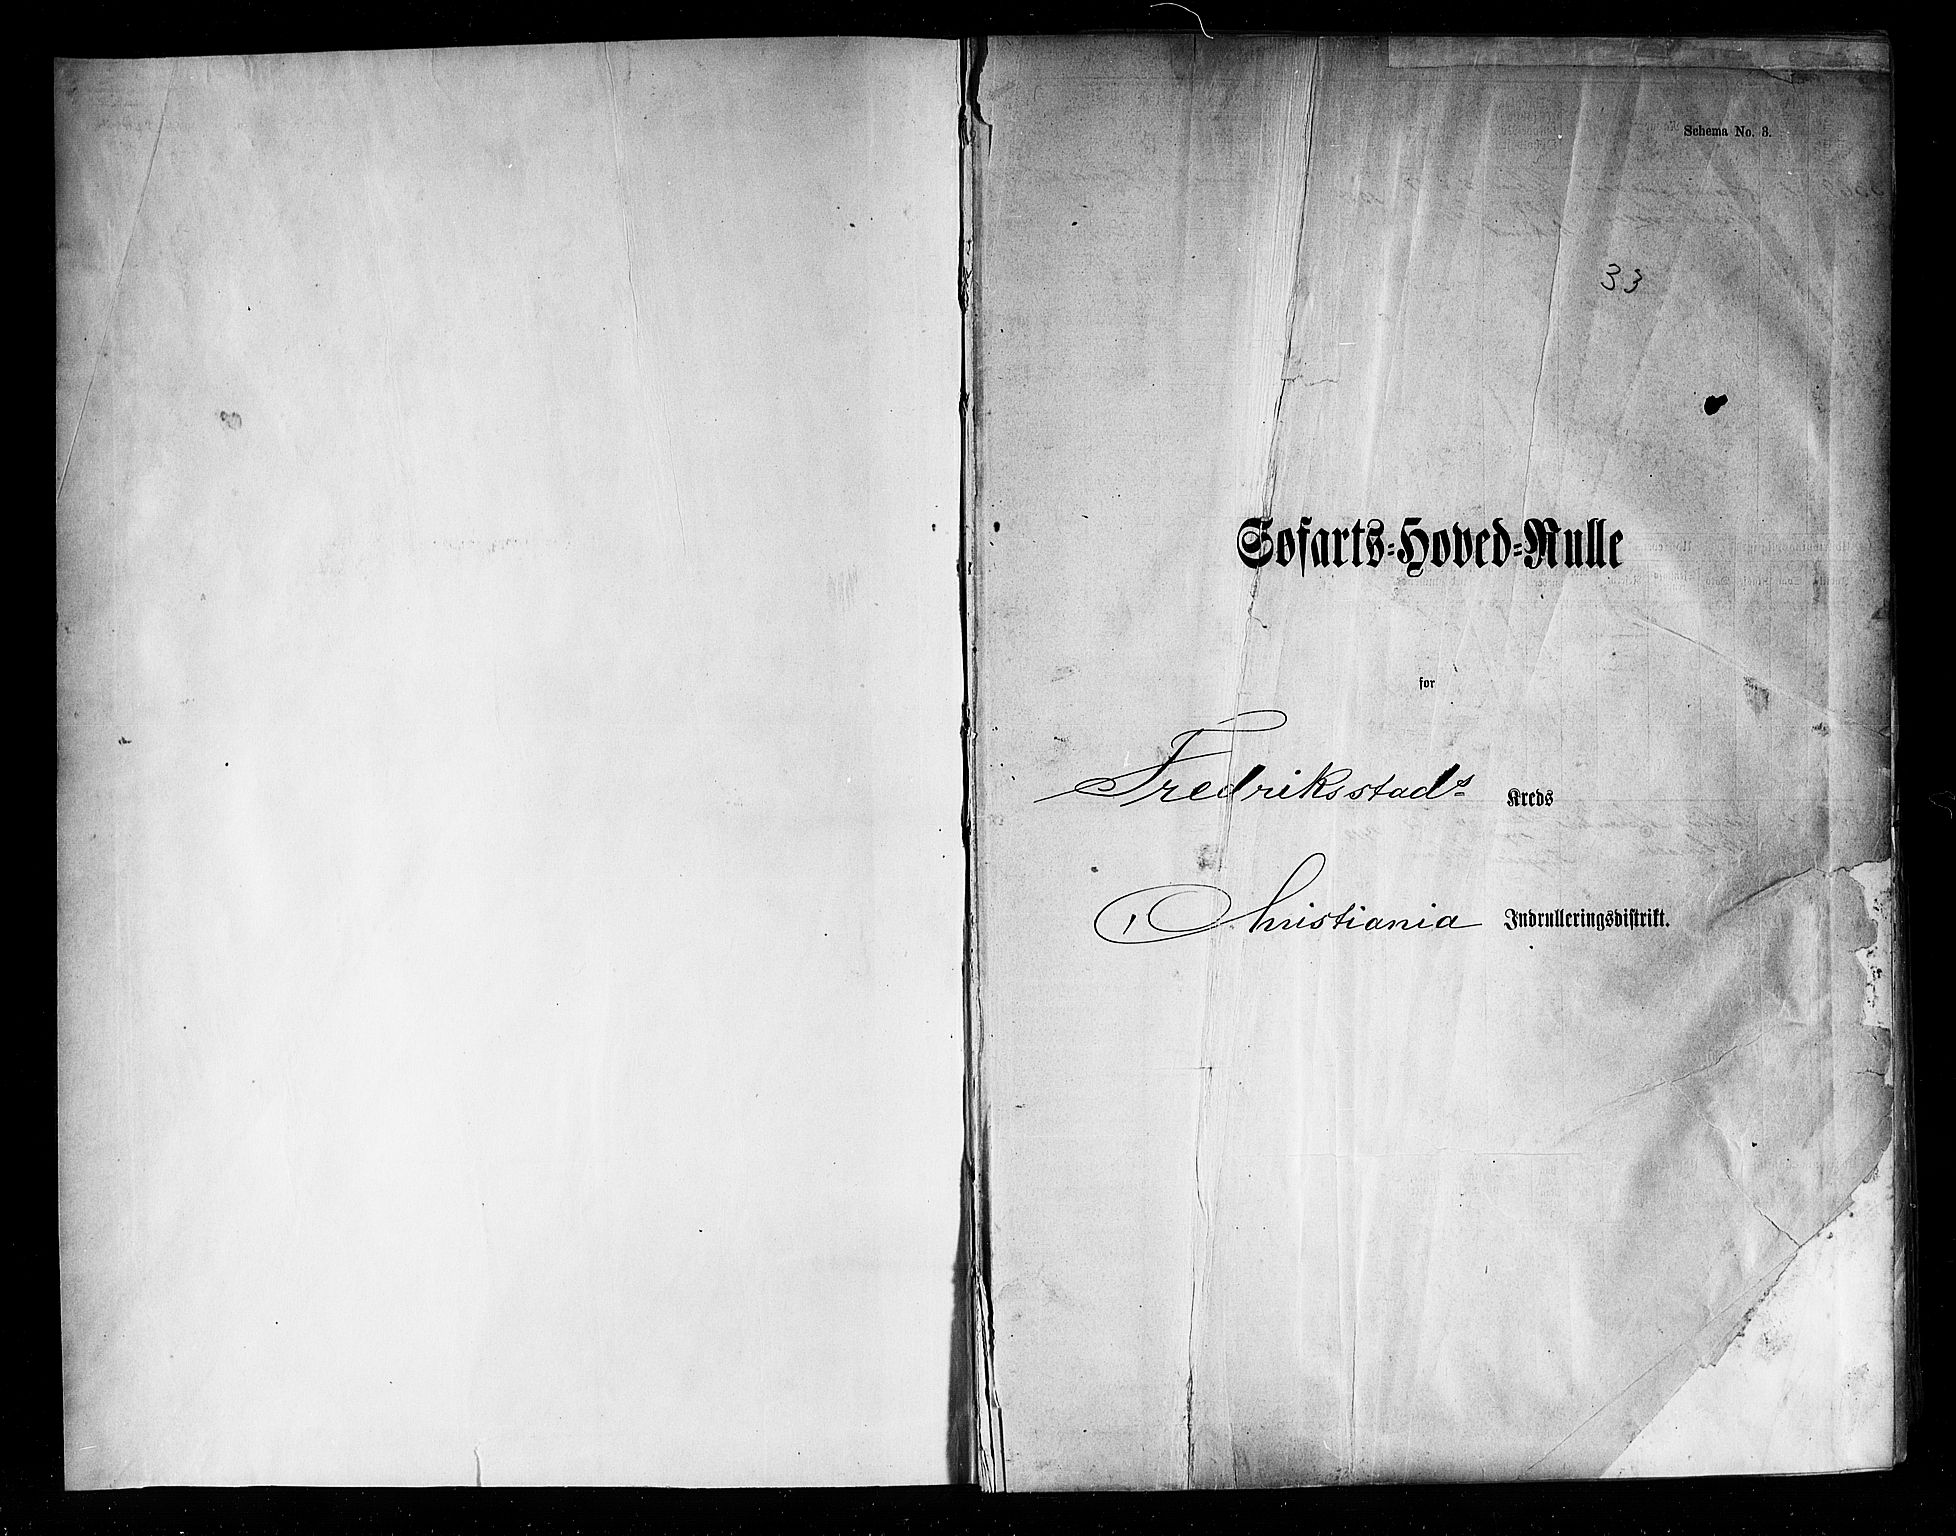 Schema No. 3.
33
Søfarts-Hoved-Rulle
for
Fredriksstads Kreds
i Christiania Indrulleringsdistrikt.